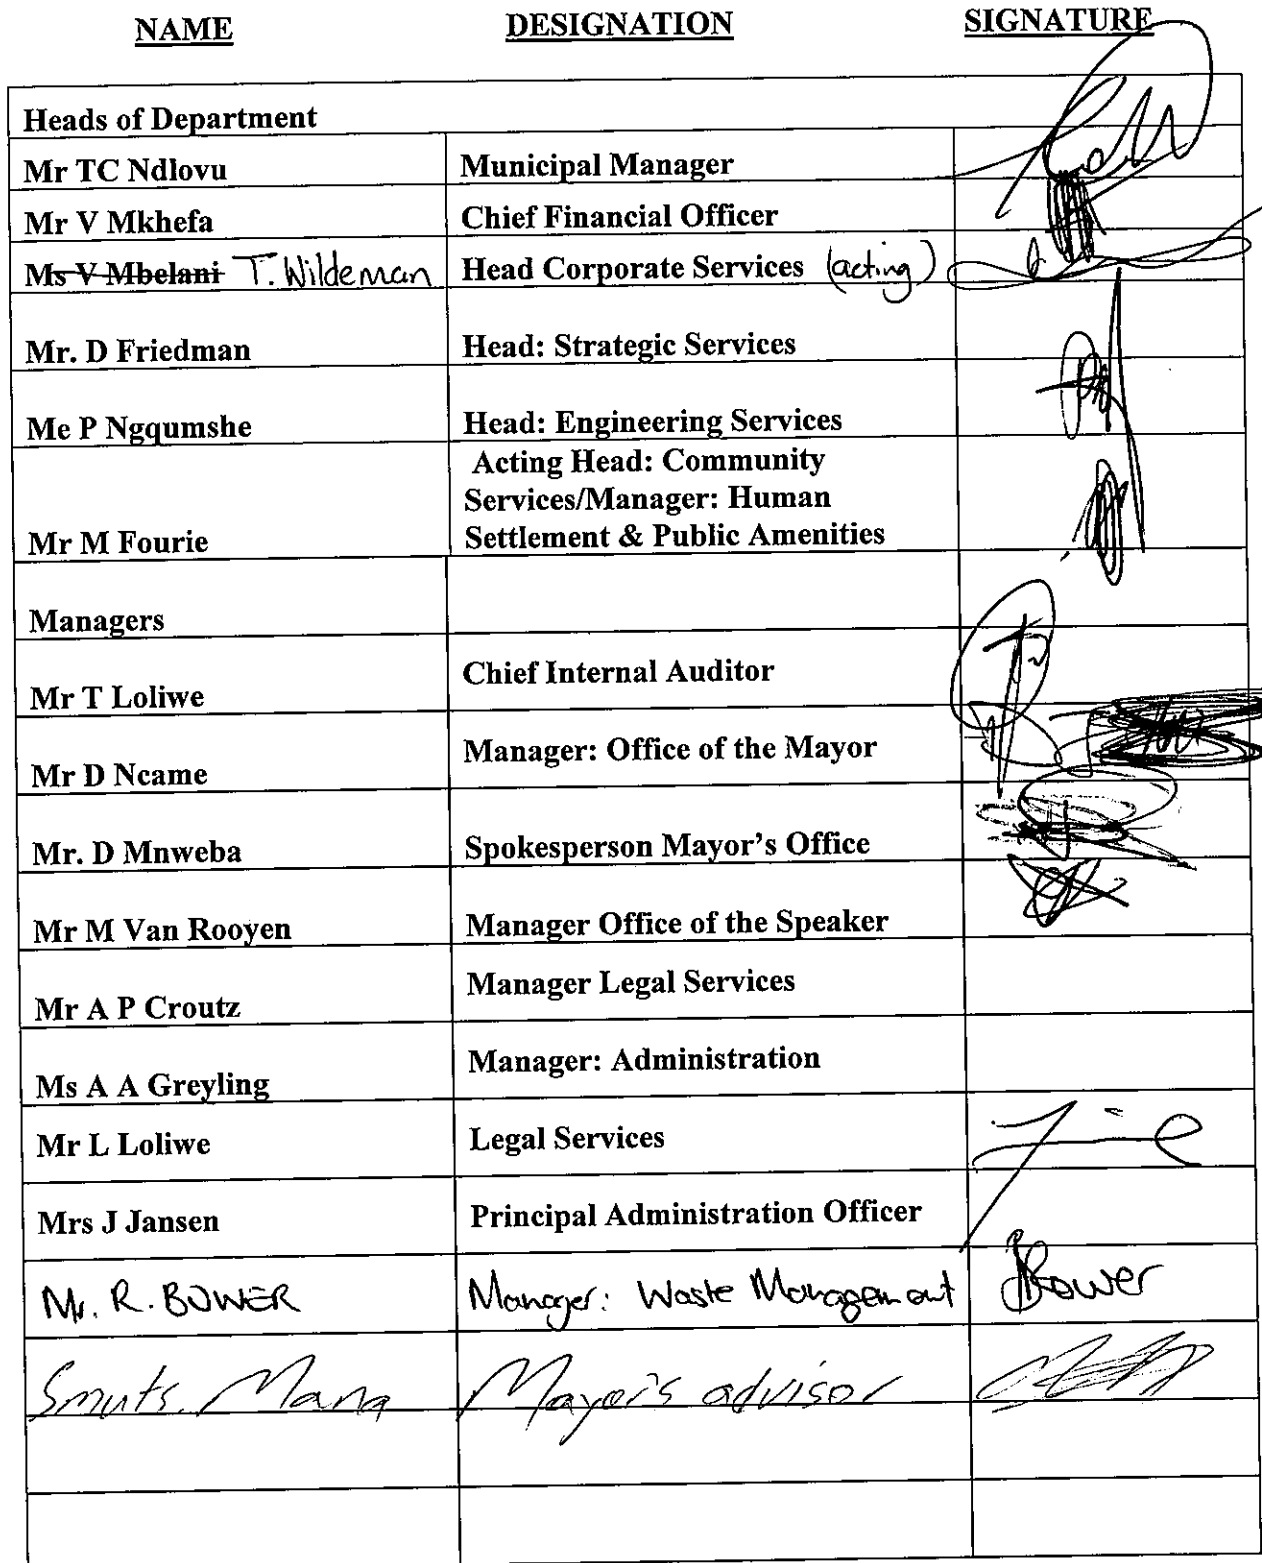 NAME DESIGNATION SIGNATURE
Heads of Department
Mr TC Ndlovu Municipal Manager
Mr V Mkhefa Chief Financial Officer
Ms V Mbelani T. Wildeman Head Corporate Services (acting)
Mr. D Friedman Head: Strategic Services
Me P Ngqumshe Head: Engineering Services
Acting Head: Community
Services/Manager: Human
Mr M Fourie Settlement & Public Amenities
Managers
Mr T Loliwe Chief Internal Auditor
Mr D Ncame Manager: Office of the Mayor
Mr. D Mnweba Spokesperson Mayor's Office
Mr M Van Rooyen Manager Office of the Speaker
Mr A P Croutz Manager Legal Services
Ms A A Greyling Manager: Administration
Mr L Loliwe Legal Services
Mrs J Jansen Principal Administration Officer
Mr. R. BOWER Manager: Waste Management Bower
Smuts. Mana Mayor's advisor